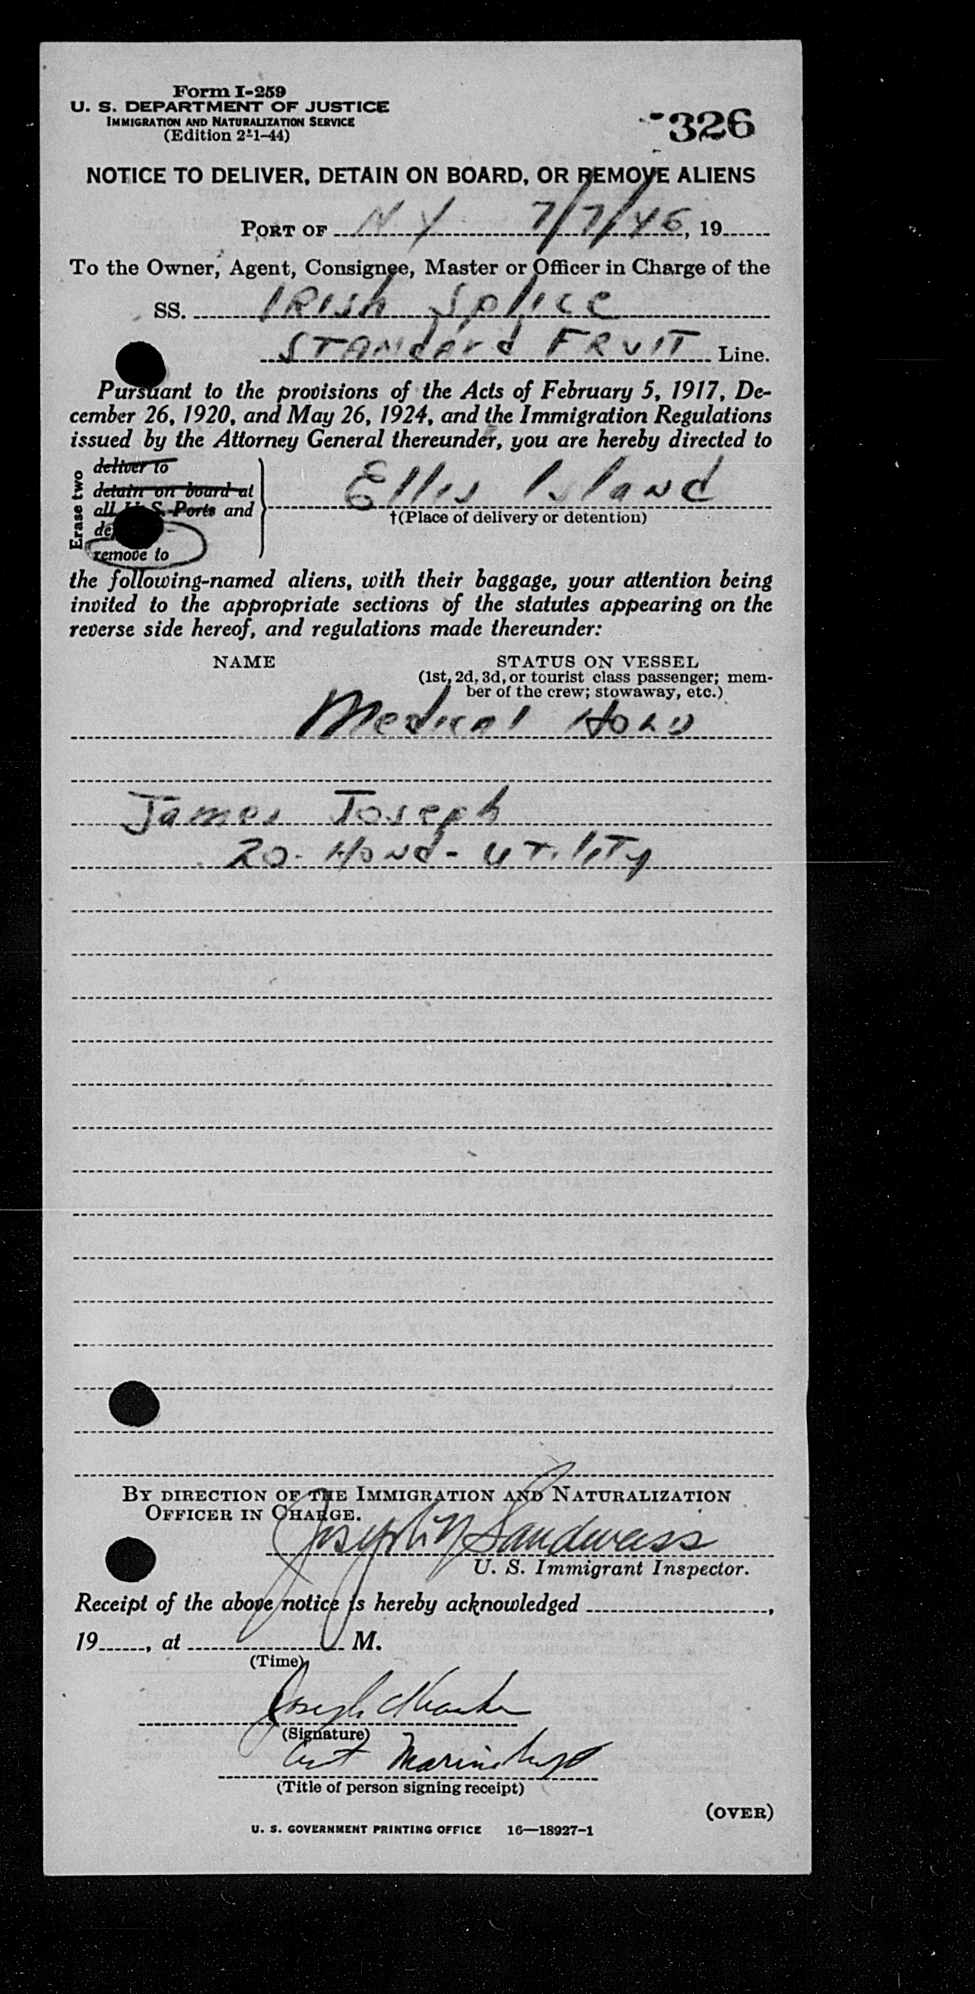 Form I-259
U. S. DEPARTMENT OF JUSTICE
IMMIGRATION AND NATURALIZATION SERVICE
(Edition 2-1-44)
326
NOTICE TO DELIVER, DETAIN ON BOARD, OR REMOVE ALIENS
PORT OF NY 7/7/46, 19
To the Owner, Agent, Consignee, Master or Officer in Charge of the
SS. IRISH Splice
STANdard FRUIT Line.
Pursuant to the provisions of the Acts of February 5, 1917, De-
cember 26, 1920, and May 26, 1924, and the Immigration Regulations
issued by the Attorney General thereunder, you are hereby directed to
Erase two
deliver to
detain on board at
all U. S. Ports and
remove to
Ellis Island
†(Place of delivery or detention)
the following-named aliens, with their baggage, your attention being
invited to the appropriate sections of the statutes appearing on the
reverse side hereof, and regulations made thereunder:
NAME
STATUS ON VESSEL
(1st, 2d, 3d, or tourist class passenger; mem-
ber of the crew; stowaway, etc.)
Medical Hold
James Joseph
20 - Hond - UTility
BY DIRECTION OF THE IMMIGRATION AND NATURALIZATION
OFFICER IN CHARGE.
Joseph Sandweiss
U. S. Immigrant Inspector.
Receipt of the above notice is hereby acknowledged ,
19 , at M.
(Time)
Joseph
(Signature)
Marine Supt
(Title of person signing receipt)
(OVER)
U. S. GOVERNMENT PRINTING OFFICE 16—18927-1